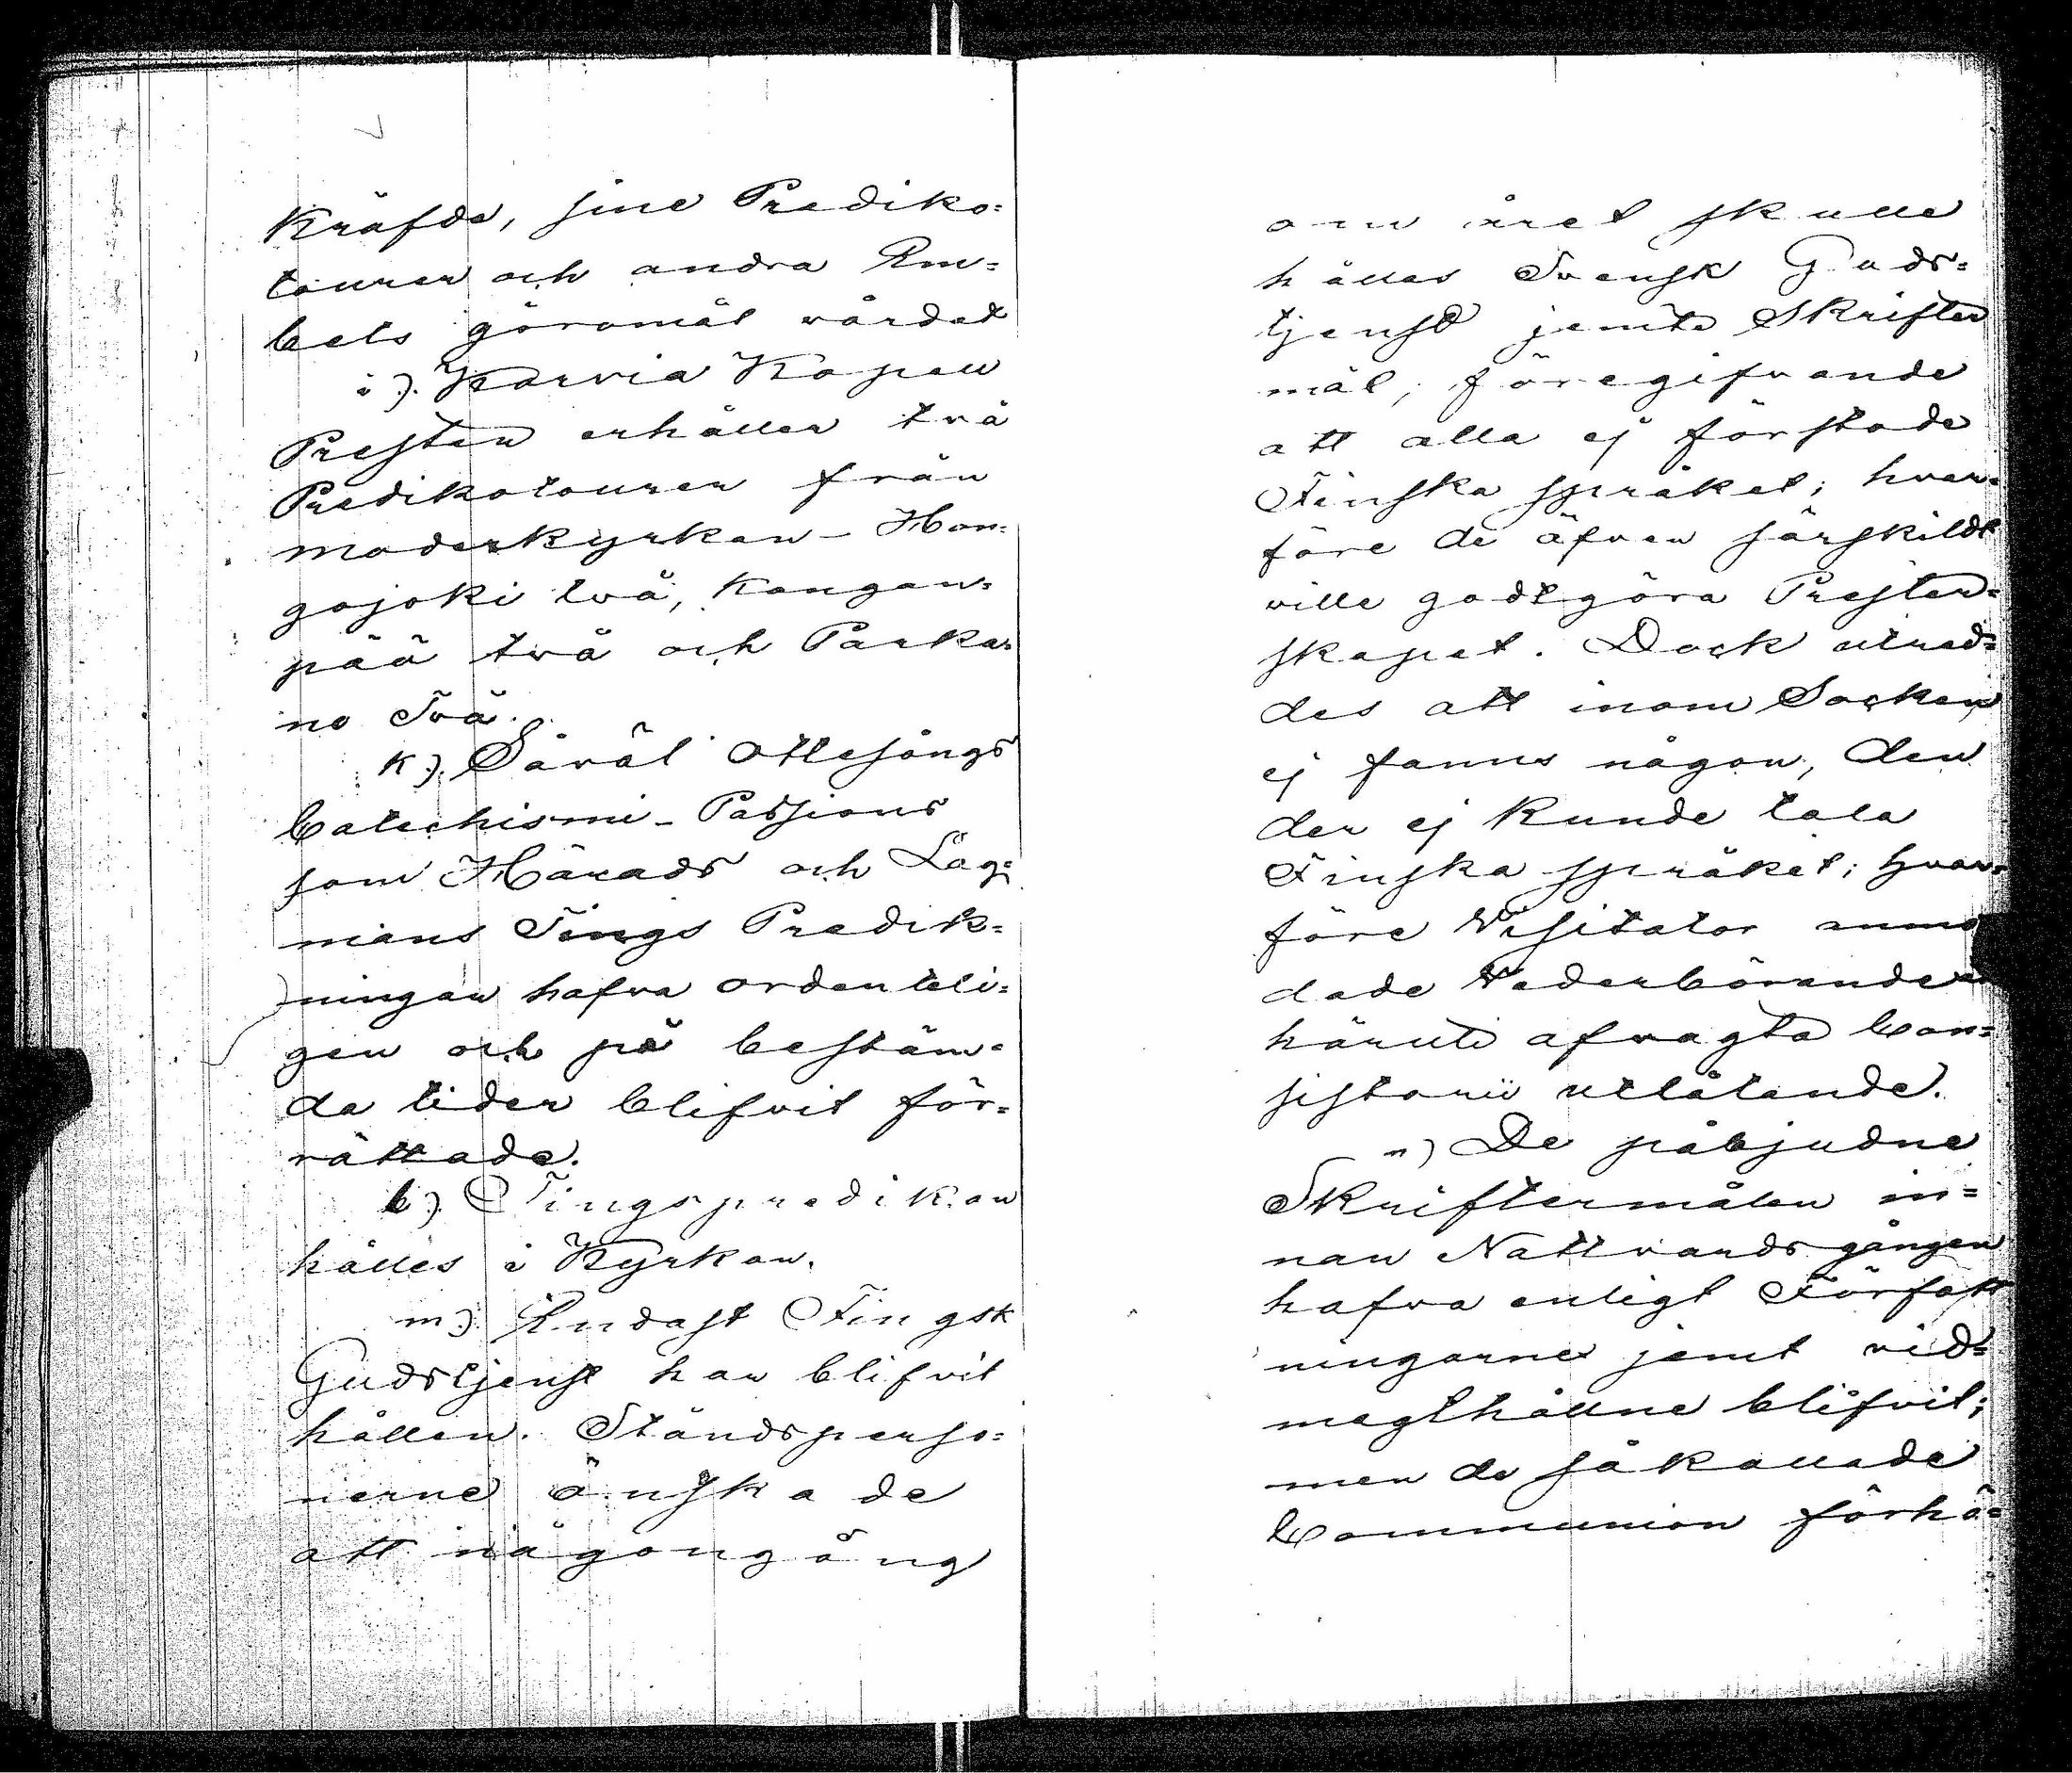 Kräfde, sine Prediko=
tourer och andra Em=
bets göromål vårdat
i). Karvia Kapell
Presten erhåller två
Predikotourer från
moderkyrkan - Hon=
gojoki två, Kangan=
pää två och Parka=
no Två.
k). Såväl ottesångs
Catechismi - Passions
som Härads och Lag=
mans Tings Predik=
ningar hafva ordenteli=
gen och på bestäm=
da tider blifvit för=
rättade.
l). Tingspredikan
hålles i Kyrkan.
m). Endast Finsk
Gudstjenst har blifvit
hållen. Ståndsperso=
nerne önskade
att någongång
om året skulle
hållas Svensk Guds=
tjenst jemte Skrifter
mål, föregifvande
att alla ej förstode
Finska språket; hvar=
före de äfven särskildt
ville godtgöra Prester=
skapet. Dock utred=
des att inom Socken
ej fanns någon, den
der ej Kunde tala
Finska språket; hvar=
före Visitator anmo
dade Vederbörande
häruti afvagta Con=
sistorii utlåtande.
n) De påbjudne
Skriftermålen in=
nan Nattvardsgången
hafva enligt Författ
ningarne jemt vid=
magthållne blifvit;
men de såkallade
Communion förhö=